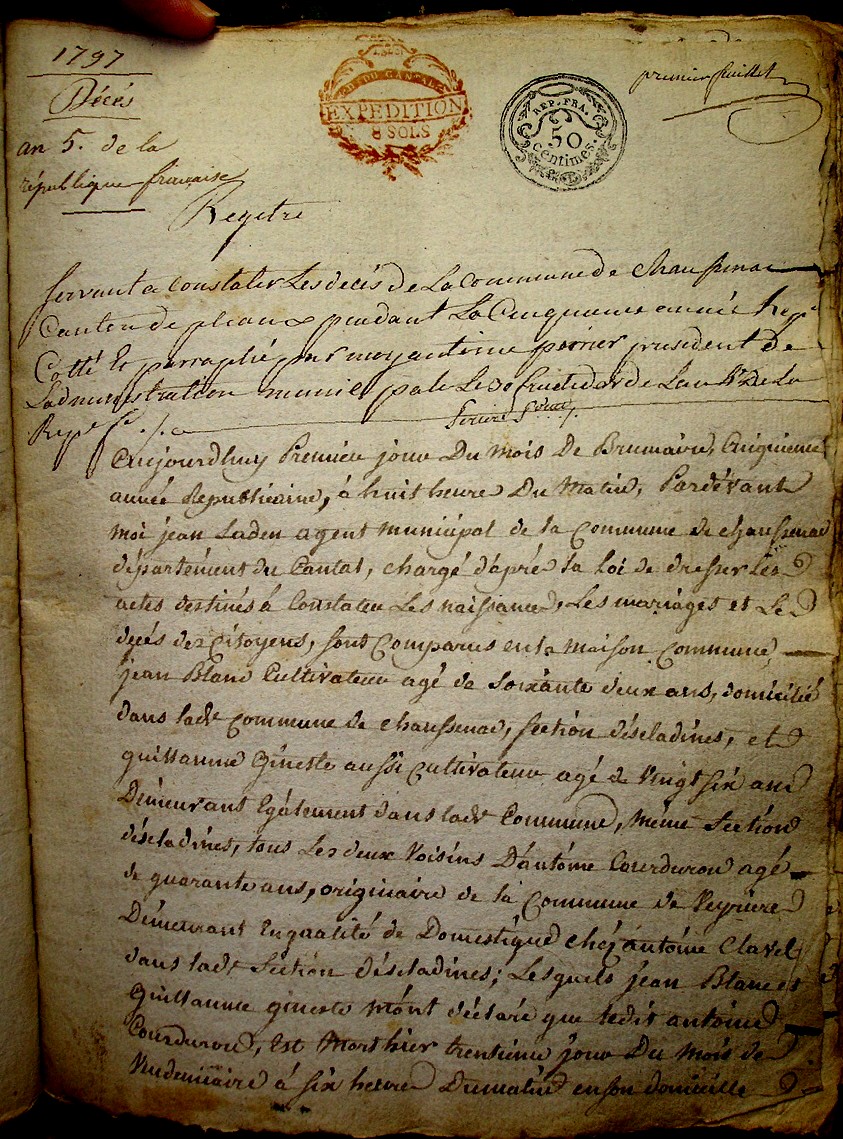 1797
Décés
an 5. de la
république française
DU CANTAL
EXPEDITION
8 SOLS
REP. FRA.
50
centimes.
premier feuillet
Registre
Servant a Constater Les décés de La Commune de Chaussenac
Canton de pleaux pendant La Cinquieme année Rep.e
Cotté Et parraphé par moy antoine poirier president de
Ladministration municipale Le 30 fructidor de Lan 4.e De La
Rep.e
Aujourdhuy Premiere jour Du mois De Brumaire, Cinquieme
année Republicaine, à huit heure Du Matin, Pardévant
moi jean Laden agent municipal de la Commune de chaussenac
département du Cantal, chargé d'aprés la Loi de dresser Les
actes destinés à Constater Les naissances, Les mariages et Les
decés des Citoyens, sont Comparus en la maison Commune,
jean Blanc Cultivateur agé de soixante deux ans, domicilié
dans ladt Commune de chaussenac, section déscladines, et
guillaume gineste aussi Cultivateur agé de vingt six ans
Demeurant Egalement dans ladt Commune, même section
déscladines, tous Les deux voisins D'antoine Courduron agé
de quarante ans, originaire de la Commune de Veyriere
Demeurant En qualité de Domestique chez antoine Clavel
dans ladt section déscladines; Lesquels jean Blanc et
Guillaume gineste m'ont déclaré que ledit antoine
Courduron, Est Mort hier trentieme jour Du mois de
Vendemiaire à six heure Du matin en son domicille